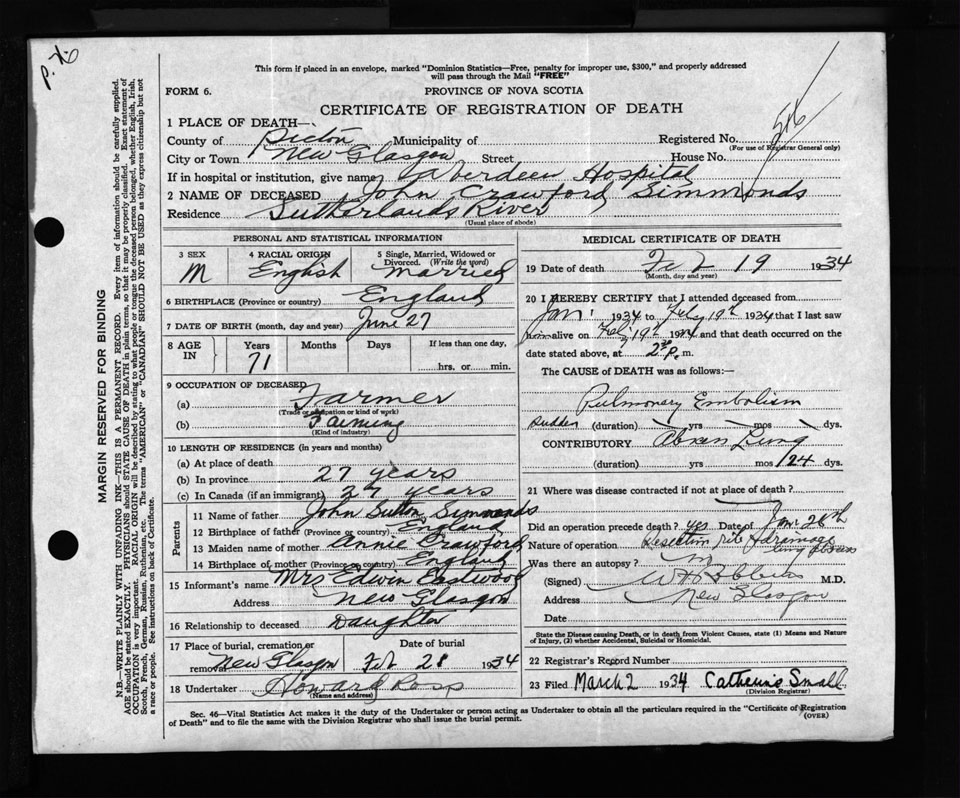 P.X.
This form if placed in an envelope, marked "Dominion Statistics—Free, penalty for improper use, $300," and properly addressed
will pass through the Mail "FREE"
FORM 6. PROVINCE OF NOVA SCOTIA
CERTIFICATE OF REGISTRATION OF DEATH
1 PLACE OF DEATH—
County of Pictou Municipality of Registered No. 516
(For use of Registrar General only)
City or Town New Glasgow Street House No.
If in hospital or institution, give name Aberdeen Hospital
2 NAME OF DECEASED John Crawford Simmonds
Residence Sutherlands River
(Usual place of abode)
PERSONAL AND STATISTICAL INFORMATION
3 SEX M
4 RACIAL ORIGIN English
5 Single, Married, Widowed or Divorced. (Write the word) Married
6 BIRTHPLACE (Province or country) England
7 DATE OF BIRTH (month, day and year) June 27
8 AGE IN Years 71 Months Days If less than one day, hrs. or min.
9 OCCUPATION OF DECEASED
(a) Farmer
(Trade occupation or kind of work)
(b) Farming
(Kind of industry)
10 LENGTH OF RESIDENCE (in years and months)
(a) At place of death
(b) In province 27 years
(c) In Canada (if an immigrant) 27 years
Parents
11 Name of father John Sutton Simmonds
12 Birthplace of father (Province or country) England
13 Maiden name of mother Annie Crawford
14 Birthplace of mother (Province or country) England
15 Informant's name Mrs Edwin Eastwood
Address New Glasgow
16 Relationship to deceased Daughter
17 Place of burial, cremation or removal New Glasgow Date of burial Feb 28 1934
18 Undertaker Howard Ross
(Name and address)
MEDICAL CERTIFICATE OF DEATH
19 Date of death Feb 19 1934
(Month, day and year)
20 I HEREBY CERTIFY that I attended deceased from
Jan 1934 to Feby 19th 1934 that I last saw
him alive on Feby 19th 1934 and that death occurred on the
date stated above, at 2 30 p. m.
The CAUSE of DEATH was as follows:—
Pulmonary Embolism
Sudden (duration) yrs mos dys.
CONTRIBUTORY Abscess Lung
(duration) yrs mos 24 dys.
21 Where was disease contracted if not at place of death?
Did an operation precede death? yes Date of Jan 26th
Nature of operation Resection rib & drainage lung abscess
Was there an autopsy?
(Signed) M.D.
Address New Glasgow
Date
State the Disease causing Death, or in death from Violent Causes, state (1) Means and Nature
of Injury, (2) whether Accidental, Suicidal or Homicidal.
22 Registrar's Record Number
23 Filed March 2 1934 Catherine Small
(Division Registrar)
Sec. 46—Vital Statistics Act makes it the duty of the Undertaker or person acting as Undertaker to obtain all the particulars required in the "Certificate of Registration
of Death" and to file the same with the Division Registrar who shall issue the burial permit. (OVER)
MARGIN RESERVED FOR BINDING
N.B.—WRITE PLAINLY WITH UNFADING INK—THIS IS A PERMANENT RECORD. Every item of information should be carefully supplied.
AGE should be stated EXACTLY. PHYSICIANS should STATE CAUSE OF DEATH in plain terms, so that it may be properly classified. Exact statement of
OCCUPATION is very important. RACIAL ORIGIN will be described by stating to what people or tongue the deceased person belonged, whether English, Irish,
Scotch, French, German, Russian, Ruthenian, etc. The terms "AMERICAN" or "CANADIAN" SHOULD NOT BE USED as they express citizenship but not
a race or people. See instructions on back of Certificate.